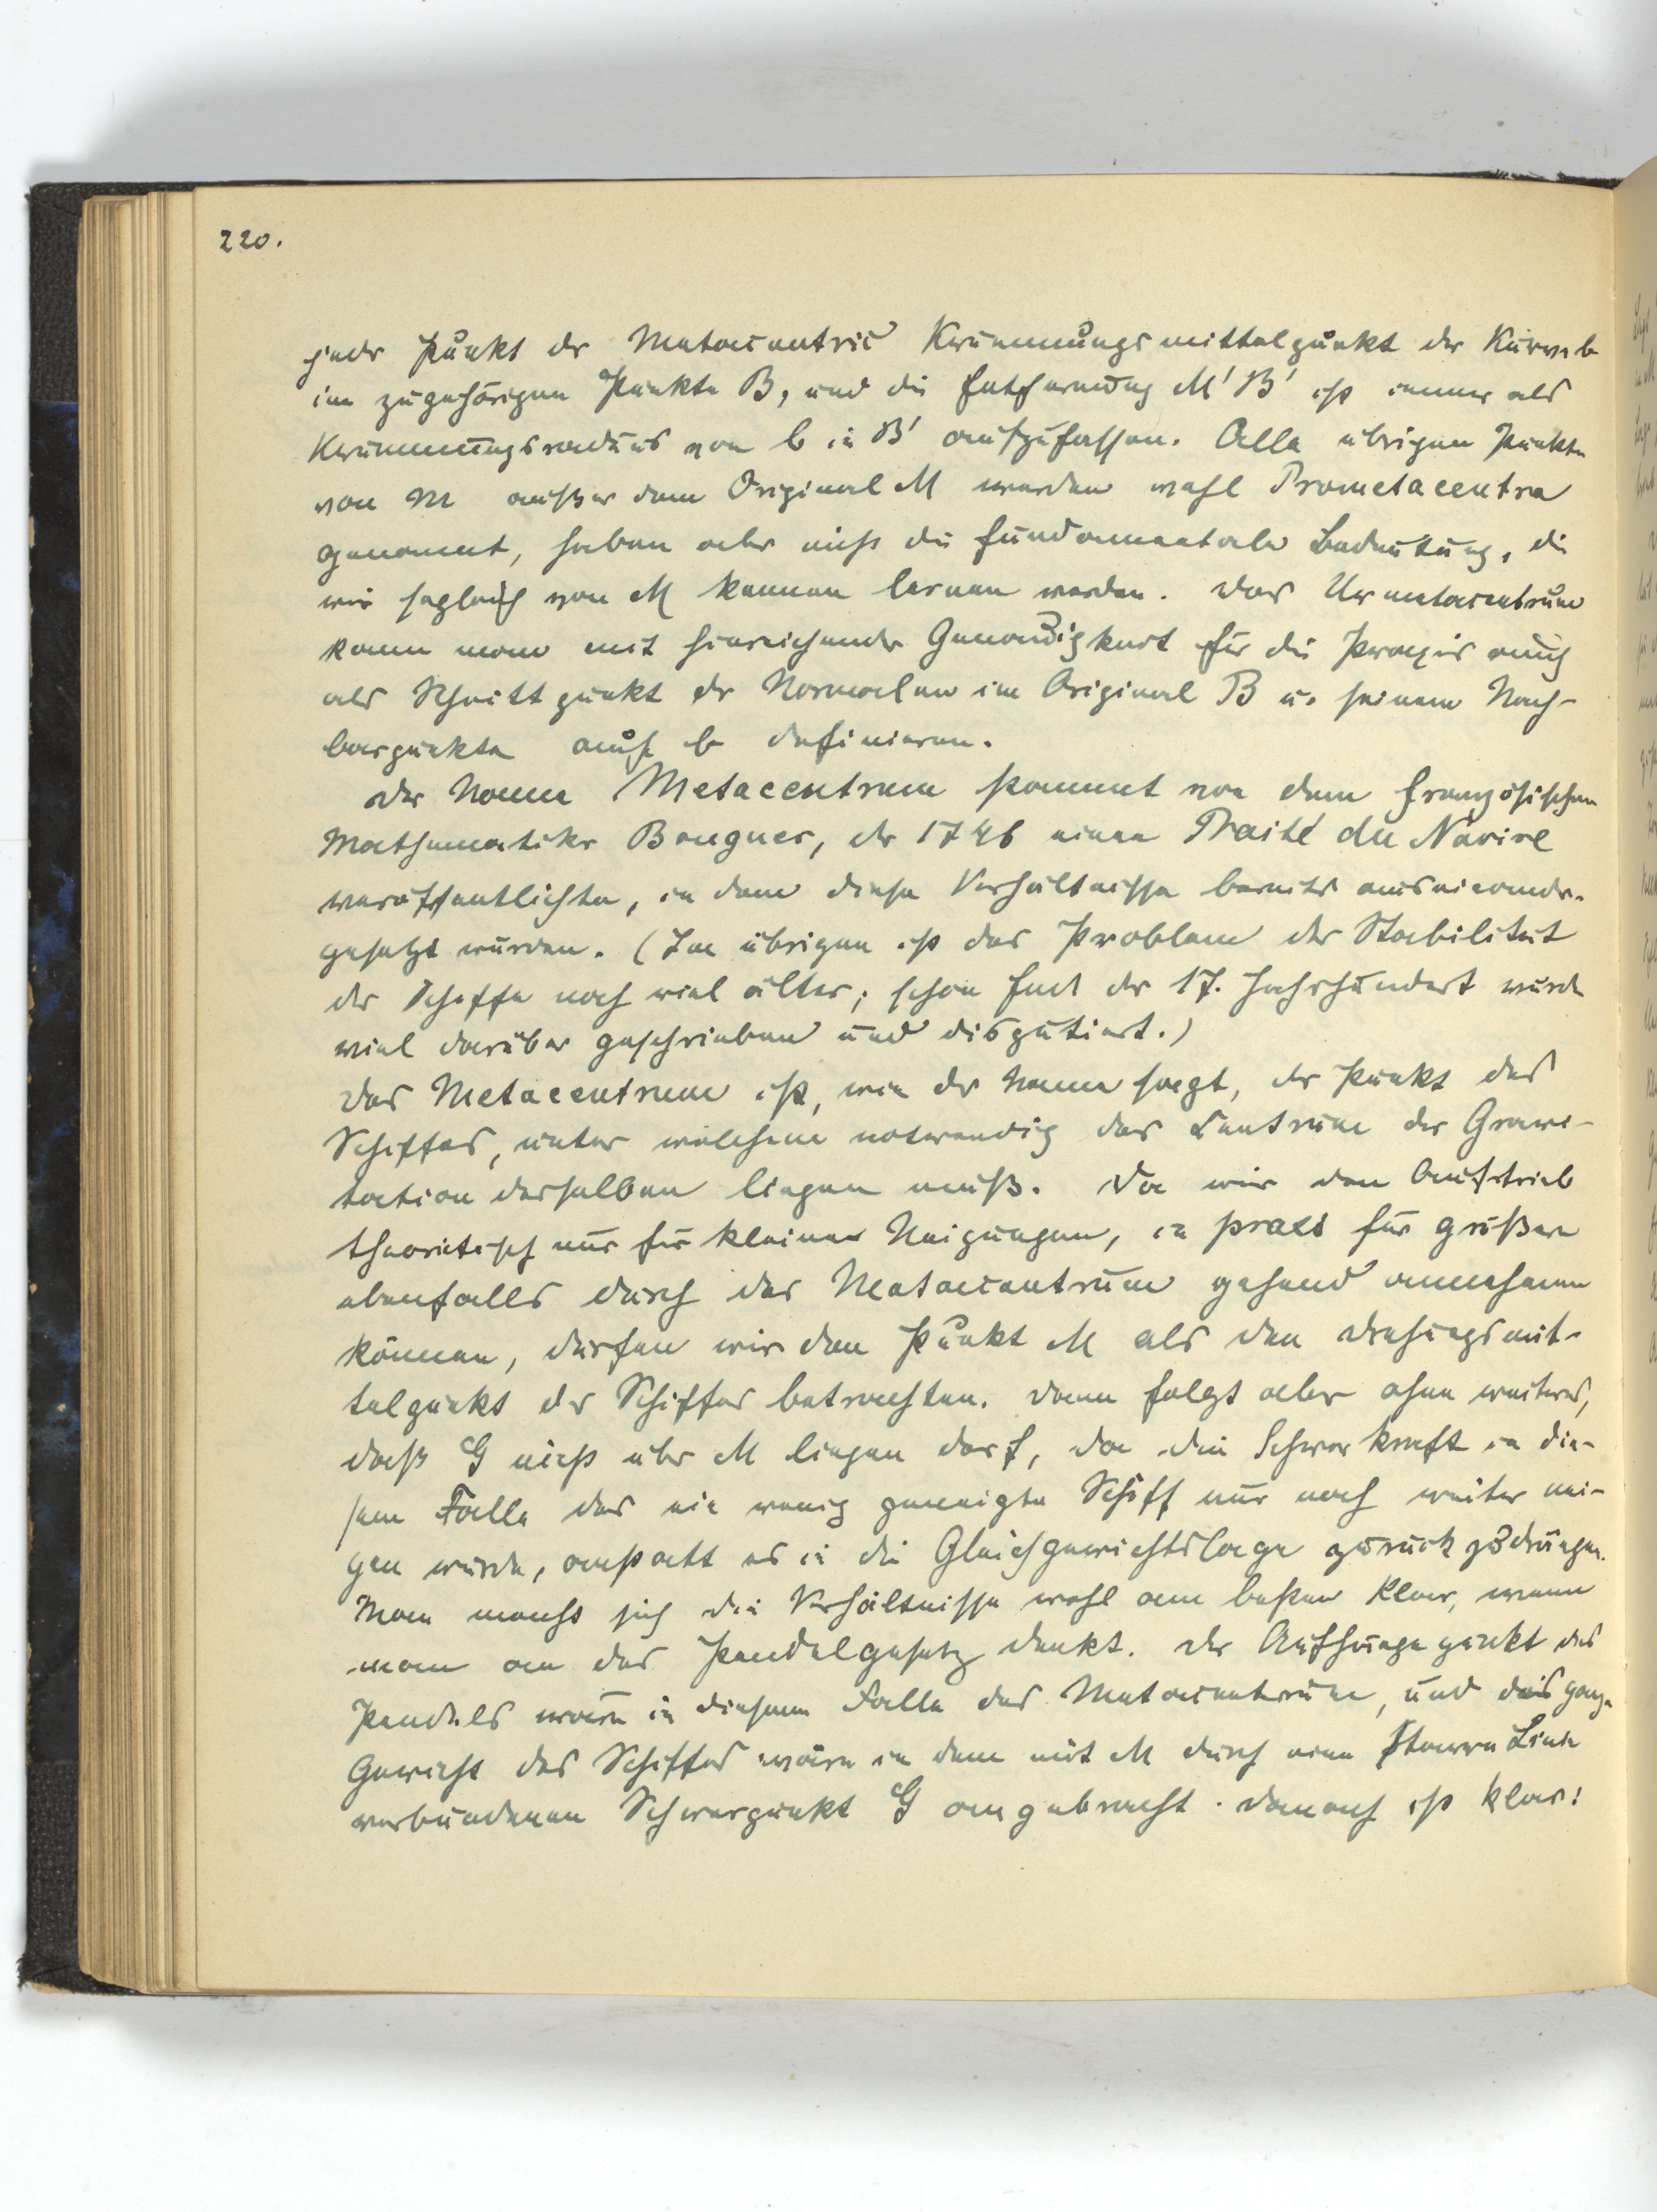 220.
jeder Punkt der Metacentric Krümmungsmittelpunkt der Kurve b
im zugehörigen Punkte B, und die Entfernung M' B' ist immer als
Krümmungsradius von b in B' aufzufassen. Alle übrigen Punkte
von m außer dem Original M werden wohl Prometacentra
genannt, haben aber nicht die fundamentale Bedeutung, die
wir sogleich von M kennen lernen werden. Das Urmetacentrum
kann man mit hinreichender Genauigkeit für die Praxis auch
als Schnittpunkt der Normalen im Original B u. seinem Nach-
barpunkte auf b definieren.
Der Name Metacentrum stammt von dem französischen
Mathematiker Bouguer, der 1746 einen Traité du Navire
veröffentlichte, in dem diese Verhältnisse bereits auseinander-
gesetzt wurden. (Im übrigen ist das Problem der Stabilität
der Schiffe noch viel älter; schon End der 17. Jahrhundert wurde
viel darüber geschrieben und disputiert.)
Das Metacentrum ist, wie der Name sagt, der Punkt des
Schiffes, unter welchem notwendig das Centrum der Gravi-
tation desselben liegen muß. Da wir den Auftrieb
theoretisch nur für kleine Neigungen, in praxi für größere
ebenfalls durch das Metacentrum gehend annehmen
können, dürfen wir den Punkt M als den Drehungsmit-
telpunkt des Schiffes betrachten. Dann folgt aber ohne weiteres,
daß G nicht über M liegen darf, da die Schwerkraft in die-
sem Falle das ein wenig geneigte Schiff nur noch weiter nei-
gen würde, anstatt es in die Gleichgewichtslage zurück zu drängen.
Man macht sich die Verhältnisse wohl am besten klar, wenn
man an das Pendelgesetz denkt. Der Aufhängepunkt des
Pendels wäre in diesem Falle das Metacentrum, und das ganze
Gewicht des Schiffes wäre in dem mit M durch eine starre Linie
verbundenen Schwerpunkt G angebracht. Danach ist klar: